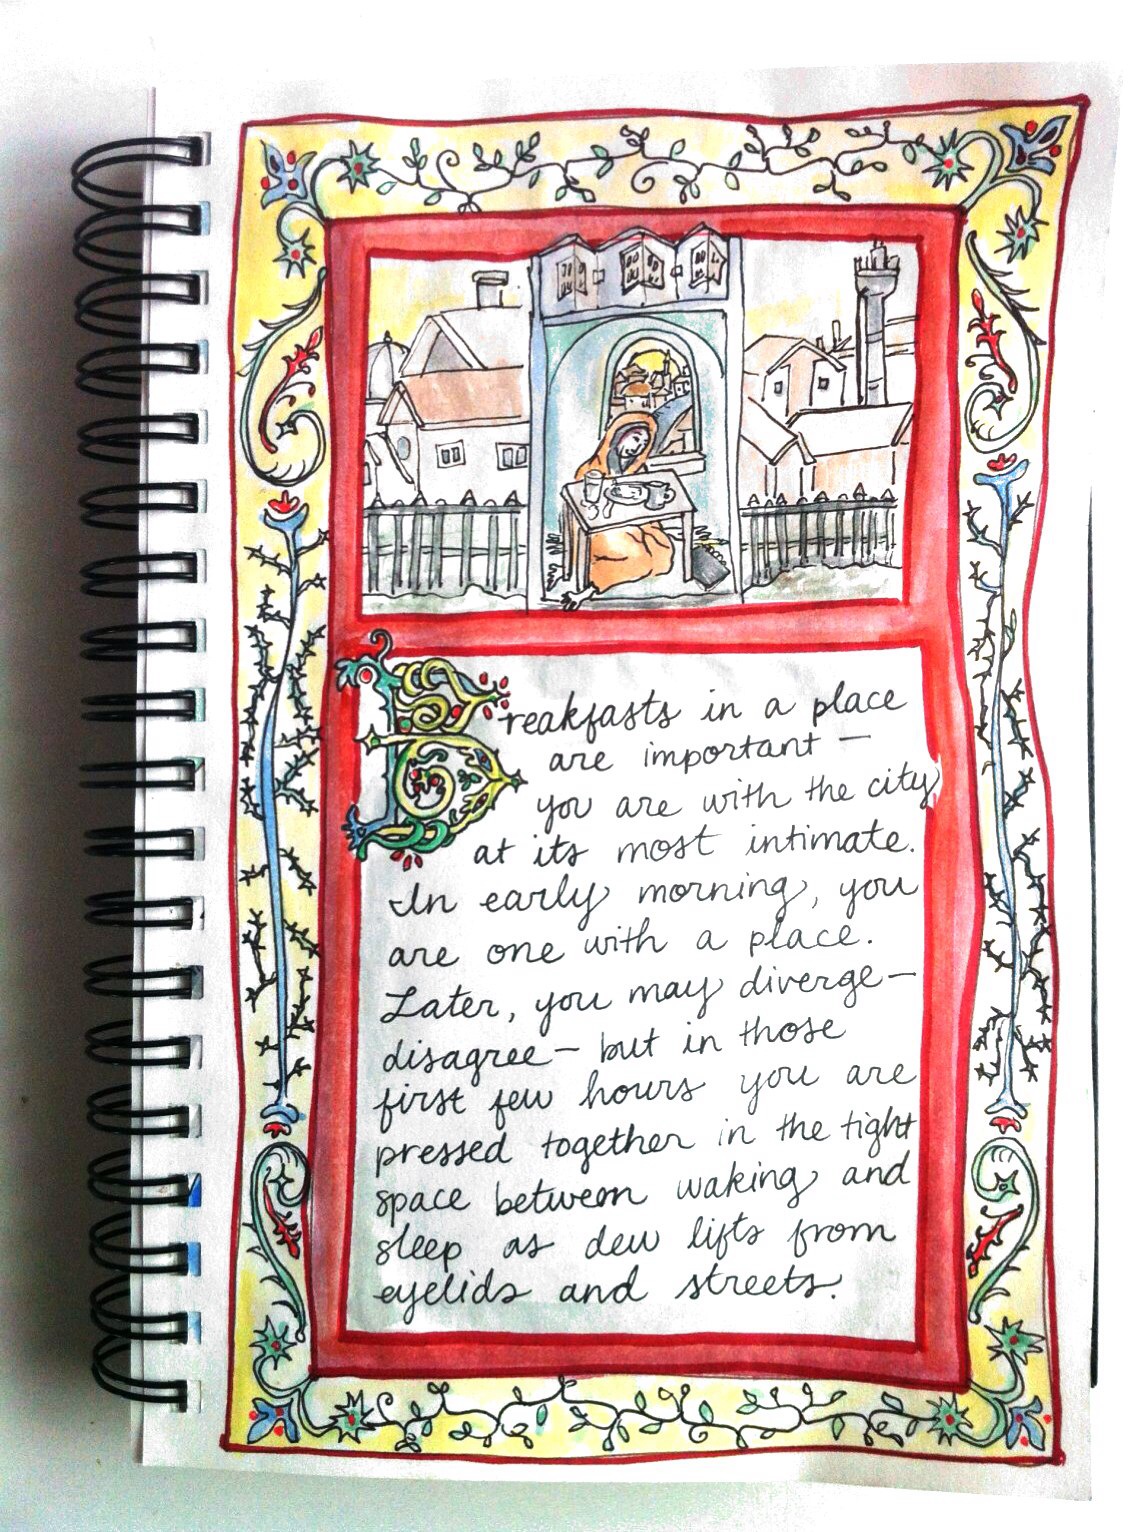 Breakfasts in a place
are important —
you are with the city
at its most intimate.
In early morning, you
are one with a place.
Later, you may diverge —
disagree — but in those
first few hours you are
pressed together in the tight
space between waking and
sleep as dew lifts from
eyelids and streets.